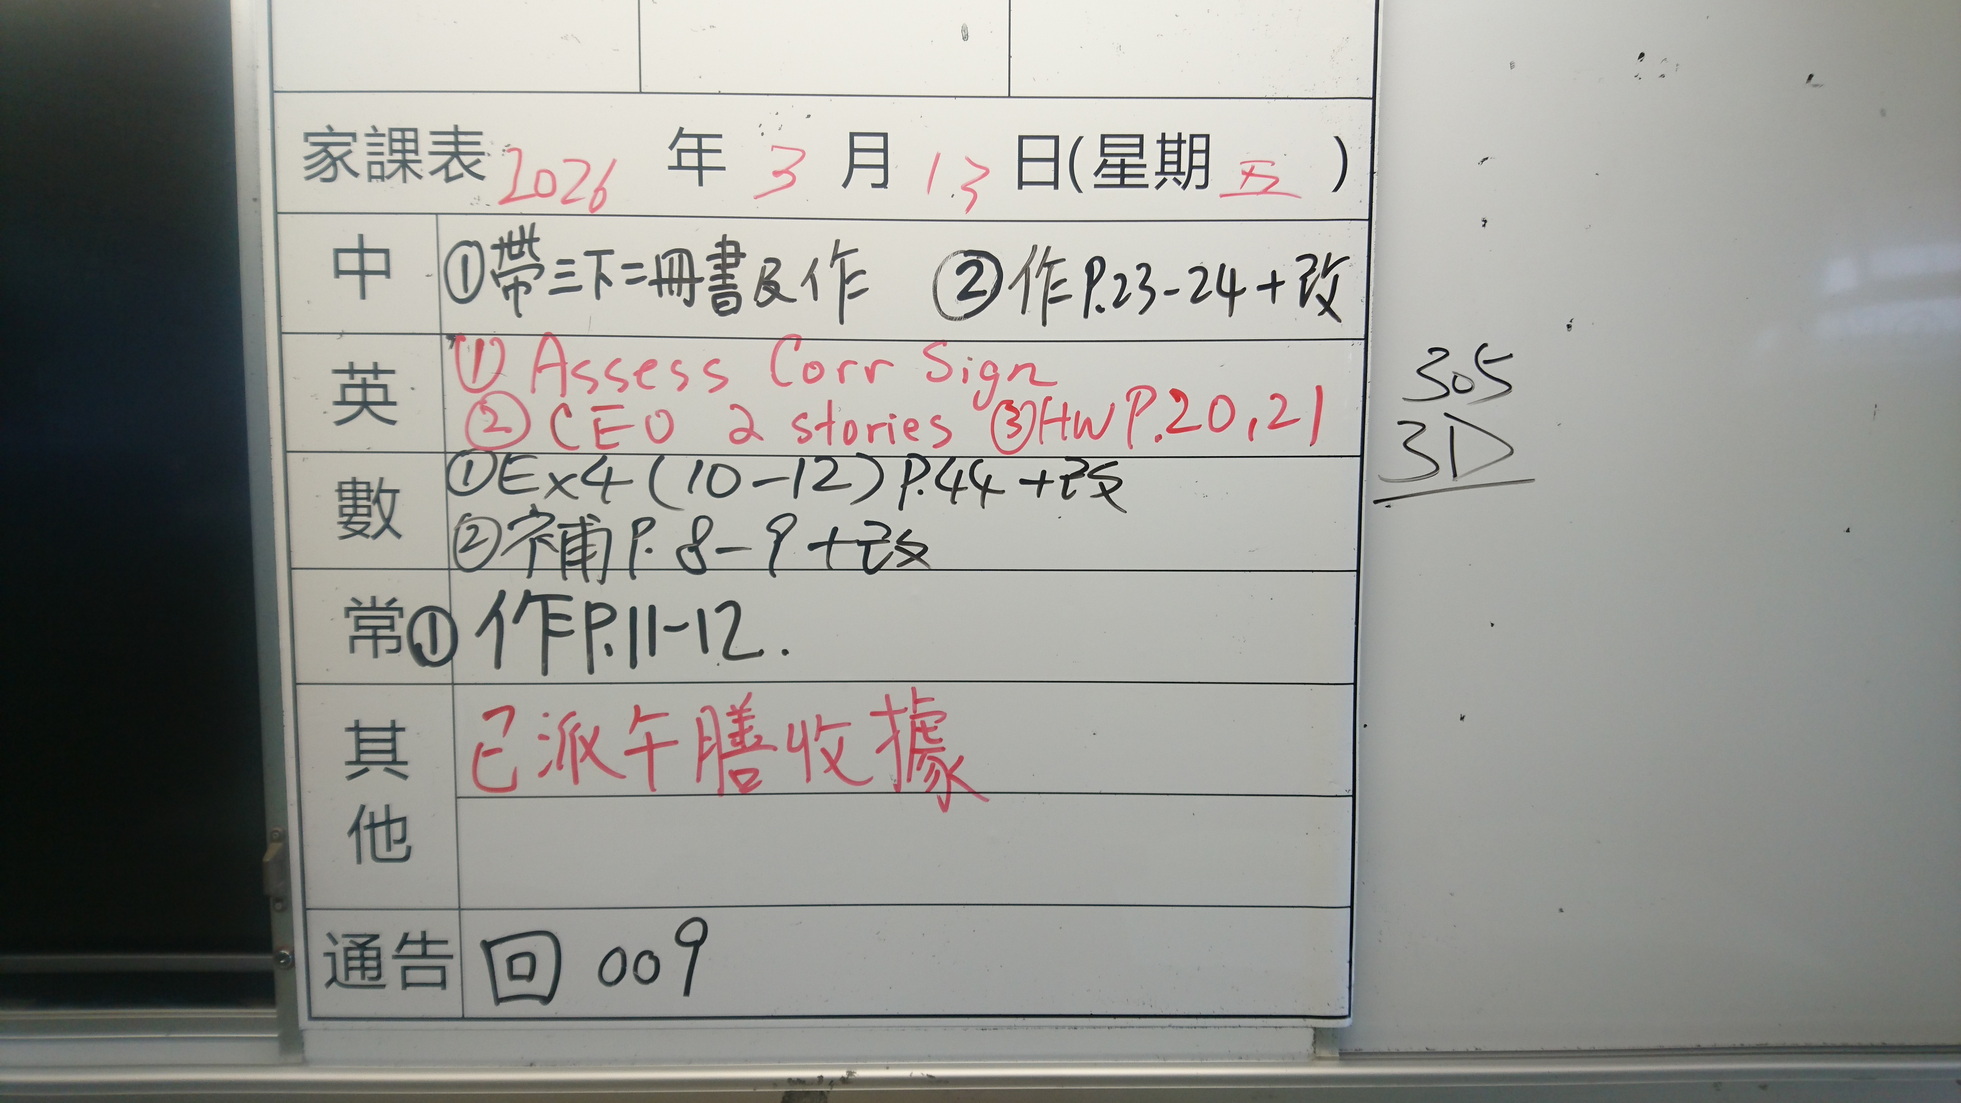 家課表 2026 年 3 月 13 日(星期 五 )
中 ①帶三下二冊書及作 ②作P.23-24+改
英 ① Assess Corr Sign
② CEO 2 stories ③HW P.20,21
數 ①Ex4(10-12)P.44+改
②補P.8-9+改
常 ① 作P.11-12.
其他 已派午膳收據
通告 回 009
305
3D